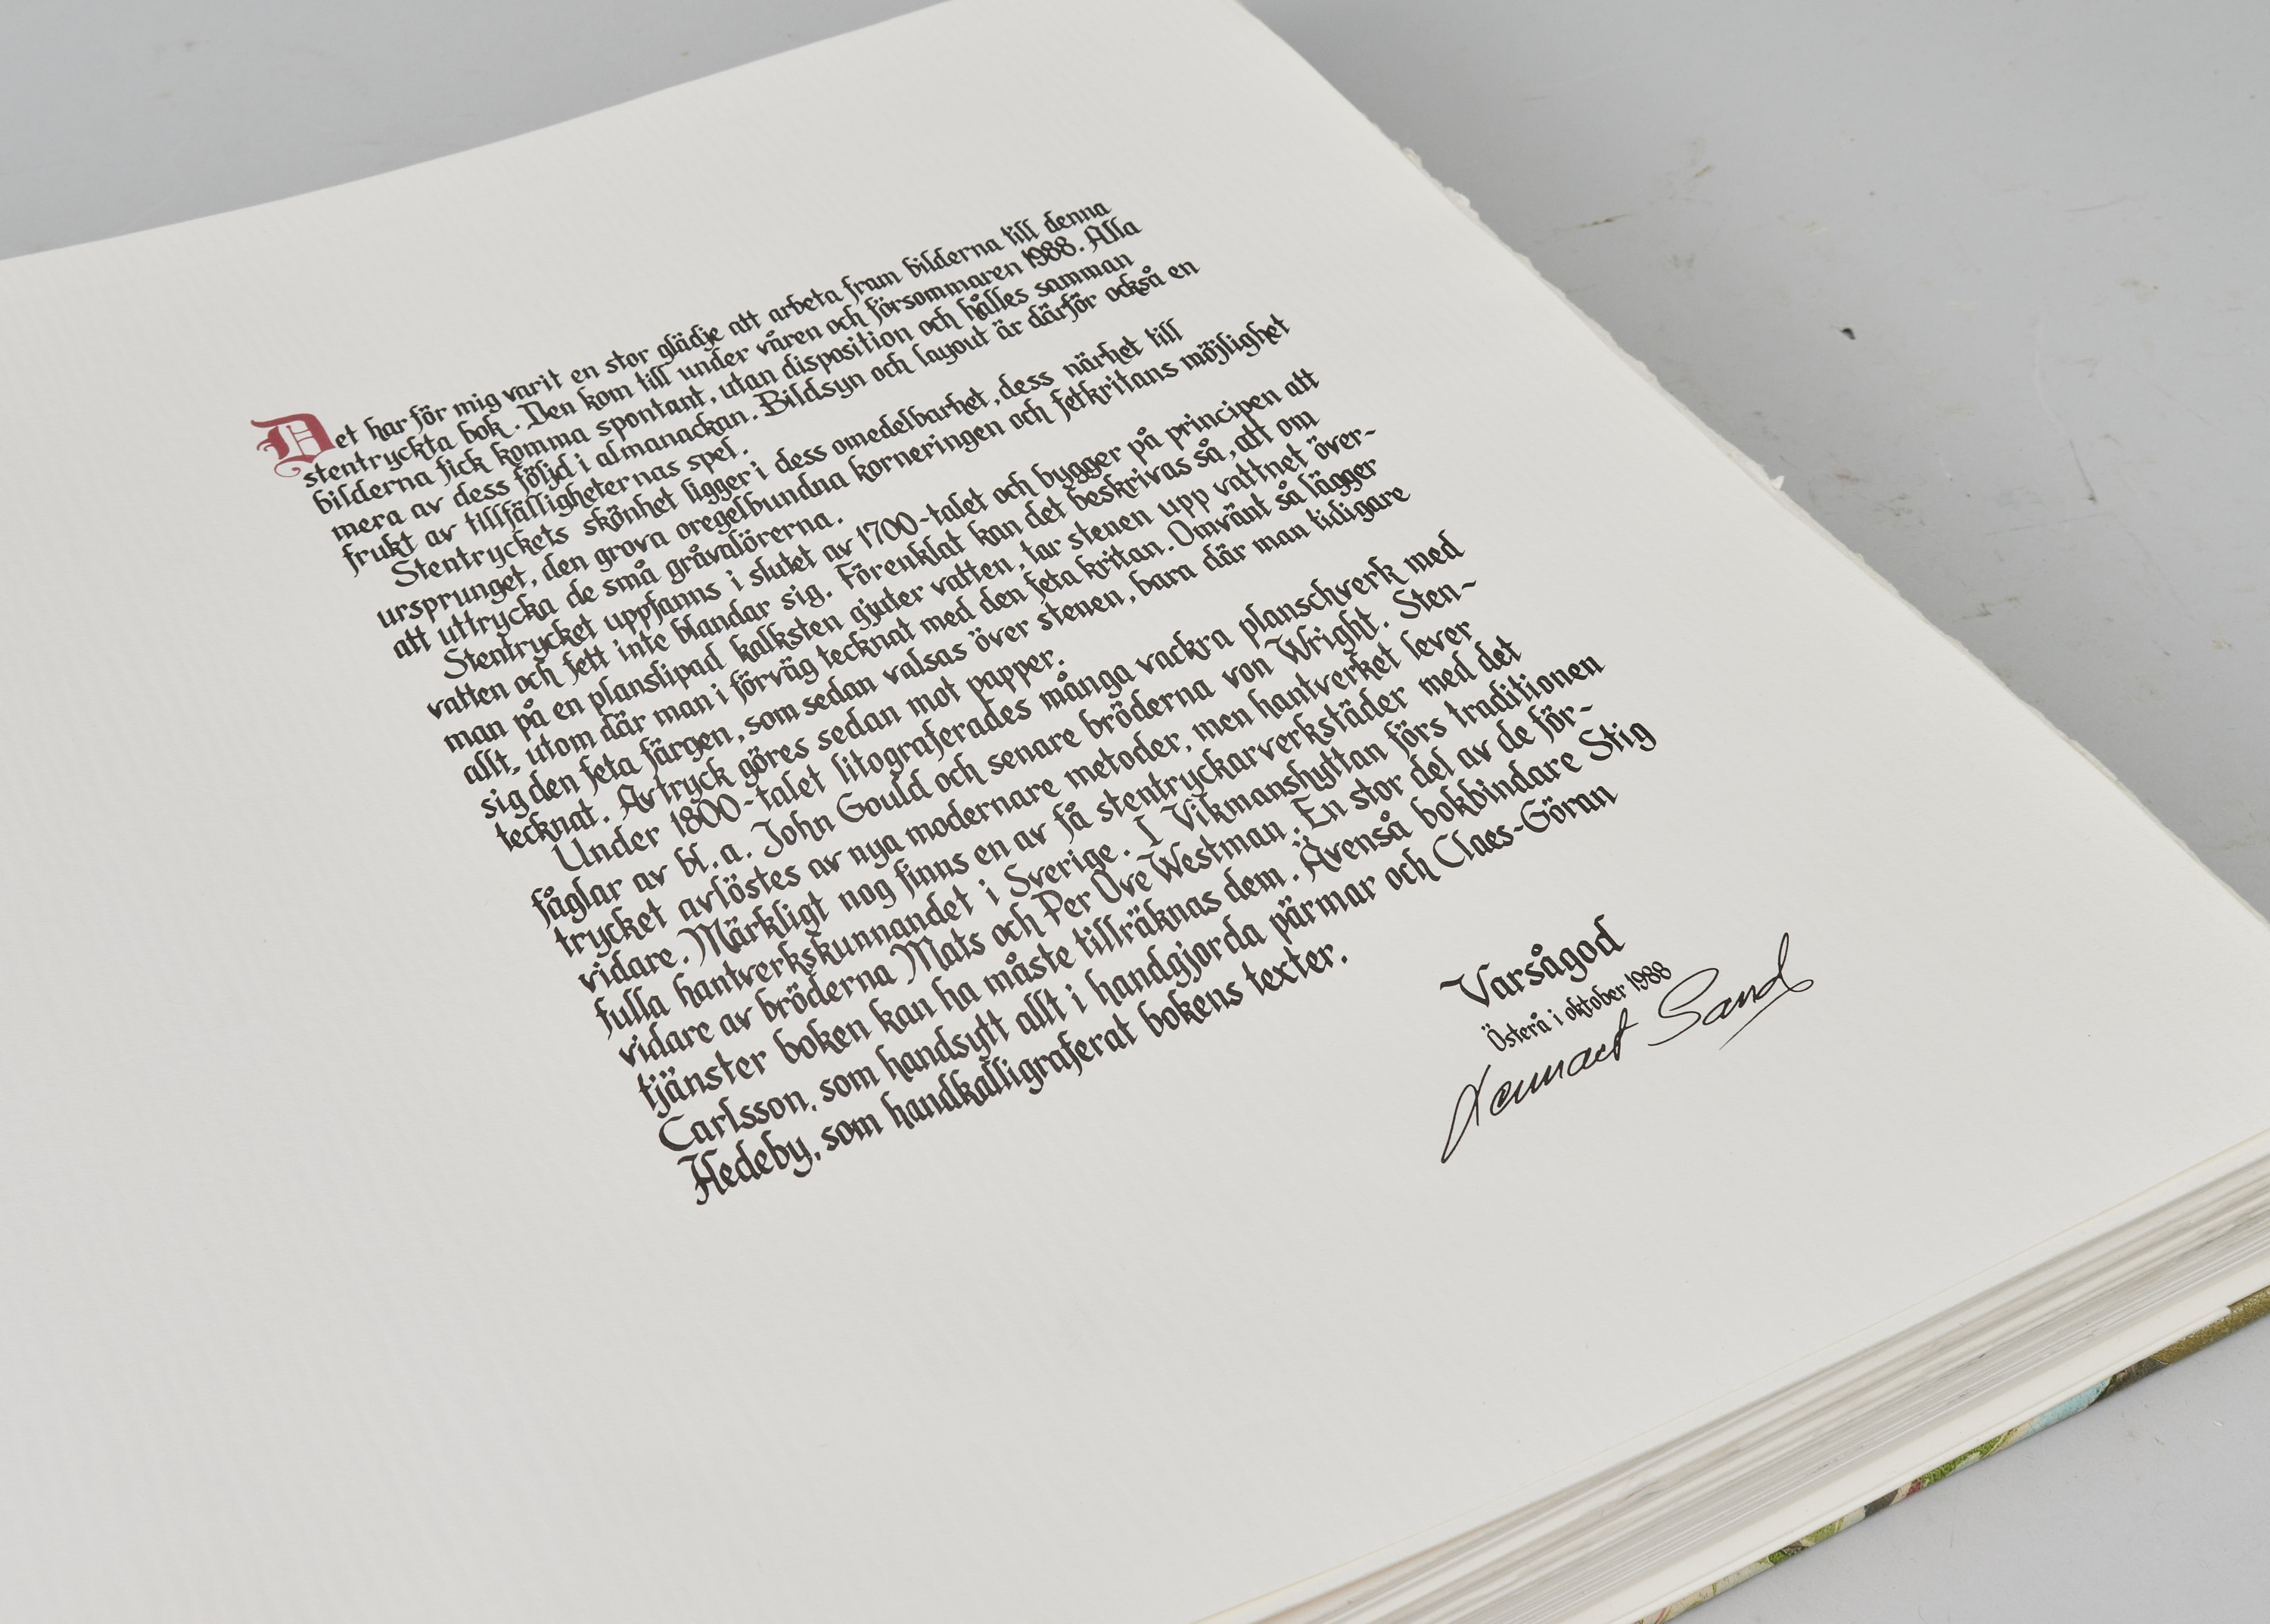 Det har för mig varit en stor glädje att arbeta fram bilderna till denna
stentryckta bok. Den kom till under våren och försommaren 1988. Alla
bilderna fick komma spontant, utan disposition och hålles samman
mera av dess följd i almanackan. Bildsyn och layout är därför också en
frukt av tillfälligheternas spel.
Stentryckets skönhet ligger i dess omedelbarhet, dess närhet till
ursprunget, den grova oregelbundna korneringen och fetkritans möjlighet
att uttrycka de små gråvalörerna.
Stentrycket uppfanns i slutet av 1700-talet och bygger på principen att
vatten och fett inte blandar sig. Förenklat kan det beskrivas så, att om
man på en planslipad kalksten gjuter vatten, tar stenen upp vattnet över-
allt, utom där man i förväg tecknat med den feta kritan. Omvänt så lägger
sig den feta färgen, som sedan valsas över stenen, bara där man tidigare
tecknat. Avtryck göres sedan mot papper.
Under 1800-talet litograferades många vackra planschverk med
fåglar av bl.a. John Gould och senare bröderna von Wright. Sten-
trycket avlöstes av nya modernare metoder, men hantverket lever
vidare. Märkligt nog finns en av få stentryckarverkstäder med det
fulla hantverkskunnandet i Sverige. I Vikmanshyttan förs traditionen
vidare av bröderna Mats och Per Ove Westman. En stor del av de för-
tjänster boken kan ha måste tillräknas dem. Ävenså bokbindare Stig
Carlsson, som handsytt allt i handgjorda pärmar och Claes-Göran
Hedeby, som handkalligraferat bokens texter.
Varsågod
Österå i oktober 1988
Lennart Sand